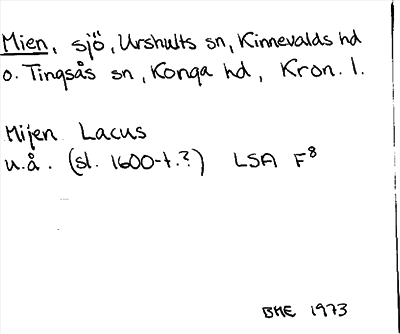 Mien, sjö, Urshults sn, Kinnevalds hd
o. Tingsås sn, Konga hd, Kron. l.
Mijen Lacus
u.å. (sl. 1600-t.?) LSA F8
BME 1973